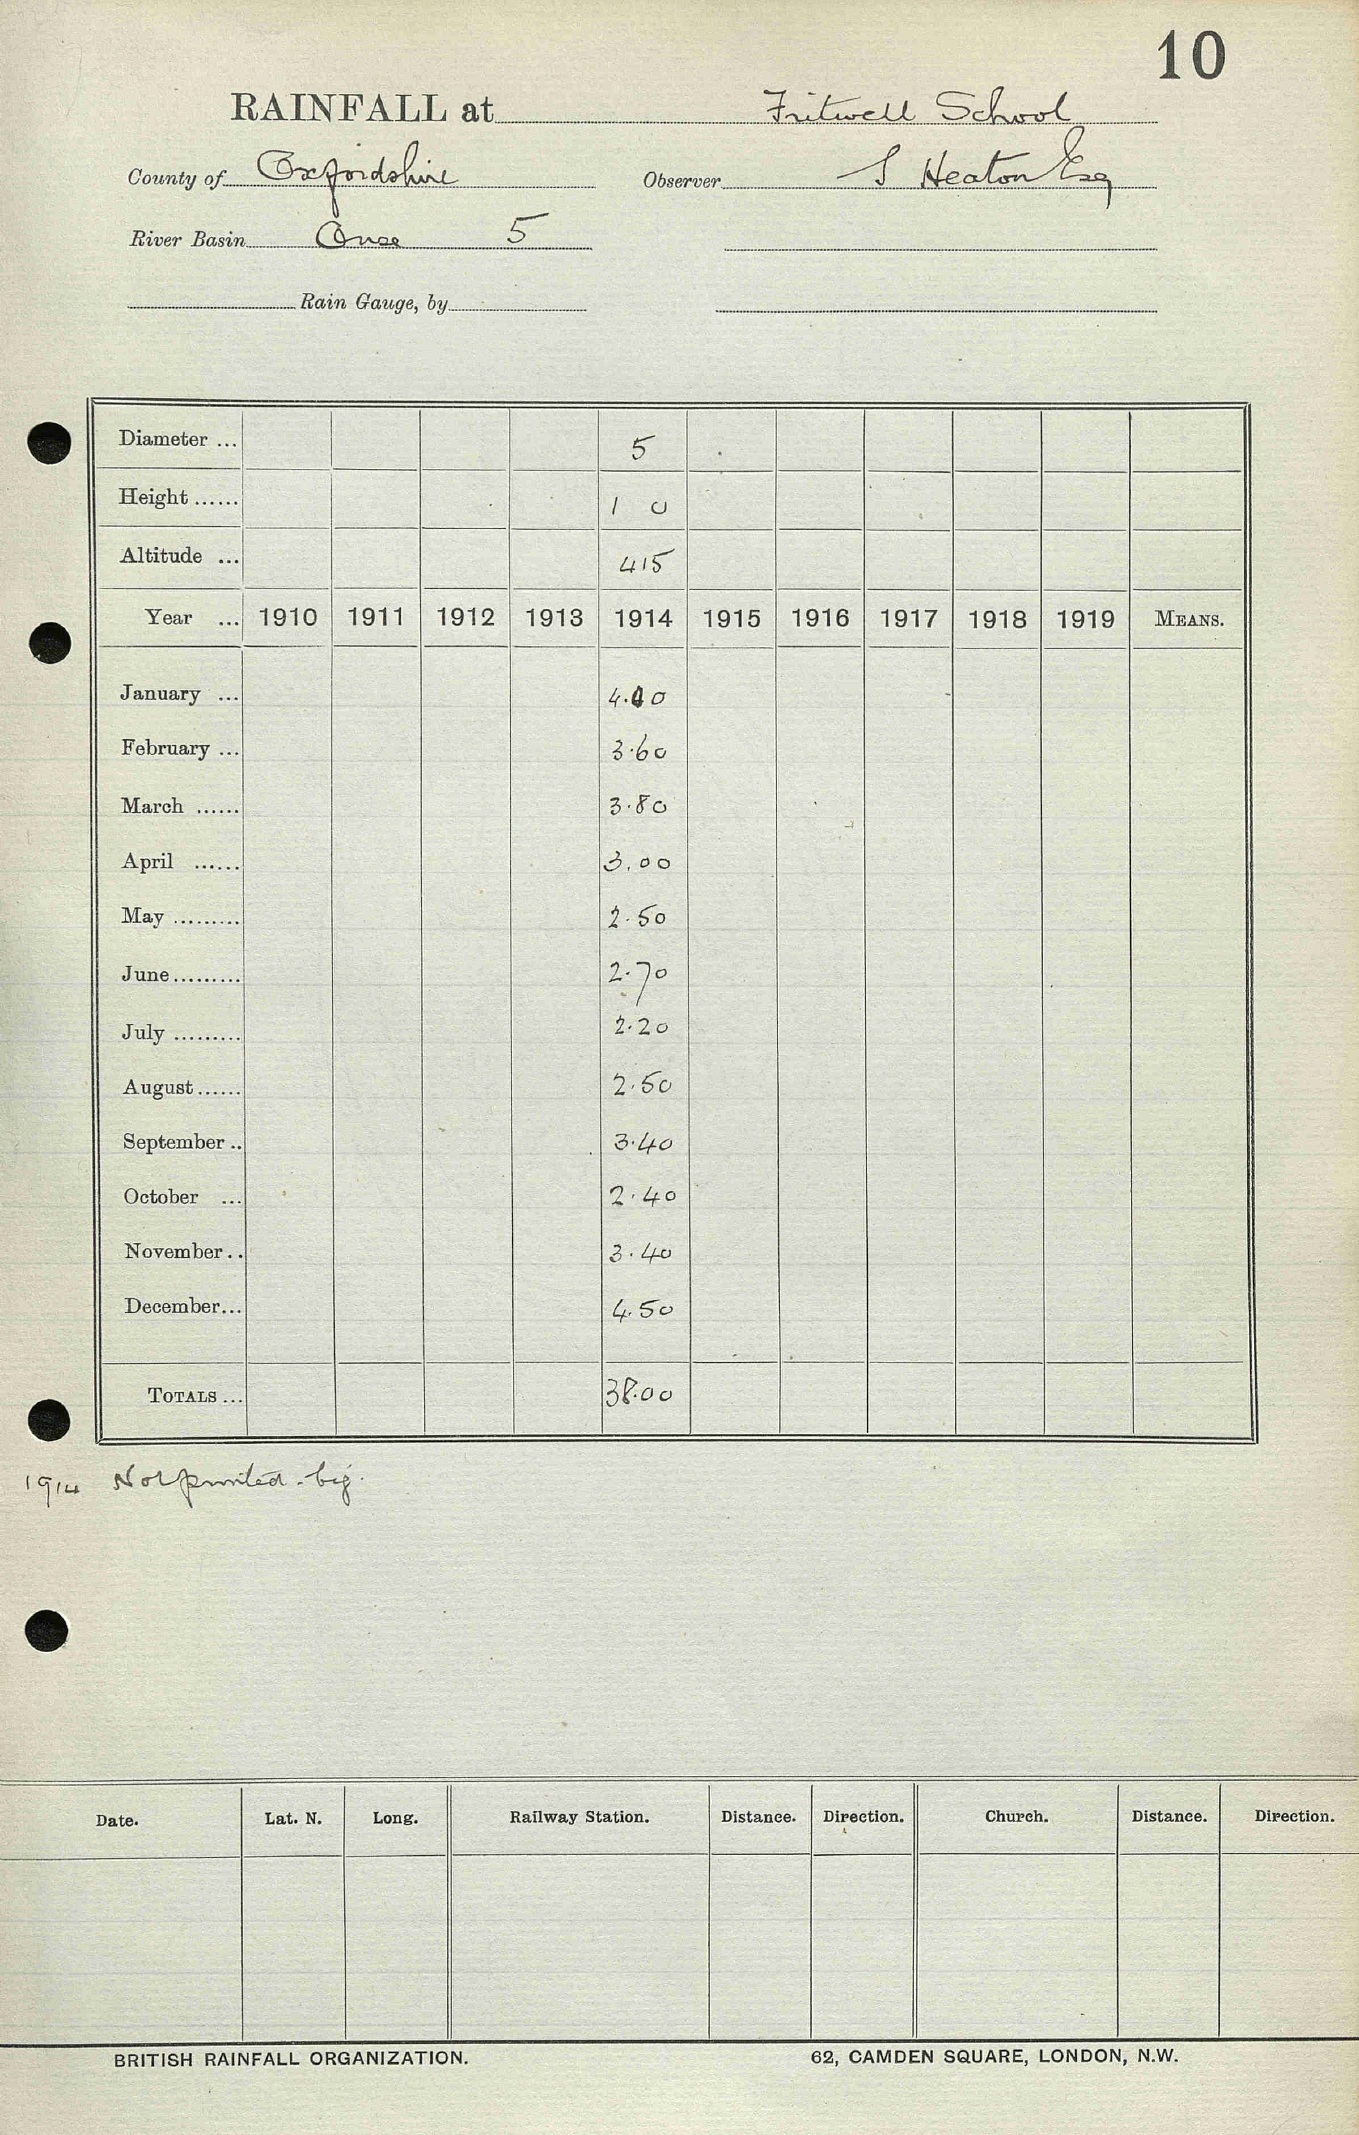 10
RAINFALL at Fritwell School
County of Oxfordshire Observer Heaton Esq
River Basin Ouse 5
Rain Gauge, by
Diameter ... 5
Height ...... 1 0
Altitude ... 415
Year ... 1910 1911 1912 1913 1914 1915 1916 1917 1918 1919 MEANS.
January ... 4.00
February ... 3.60
March ...... 3.80
April ...... 3.00
May ......... 2.50
June......... 2.70
July ......... 2.20
August...... 2.50
September .. 3.40
October ... 2.40
November.. 3.40
December... 4.50
TOTALS ... 38.00
1914 Not printed - big.
Date. Lat. N. Long. Railway Station. Distance. Direction. Church. Distance. Direction.
BRITISH RAINFALL ORGANIZATION. 62, CAMDEN SQUARE, LONDON, N.W.